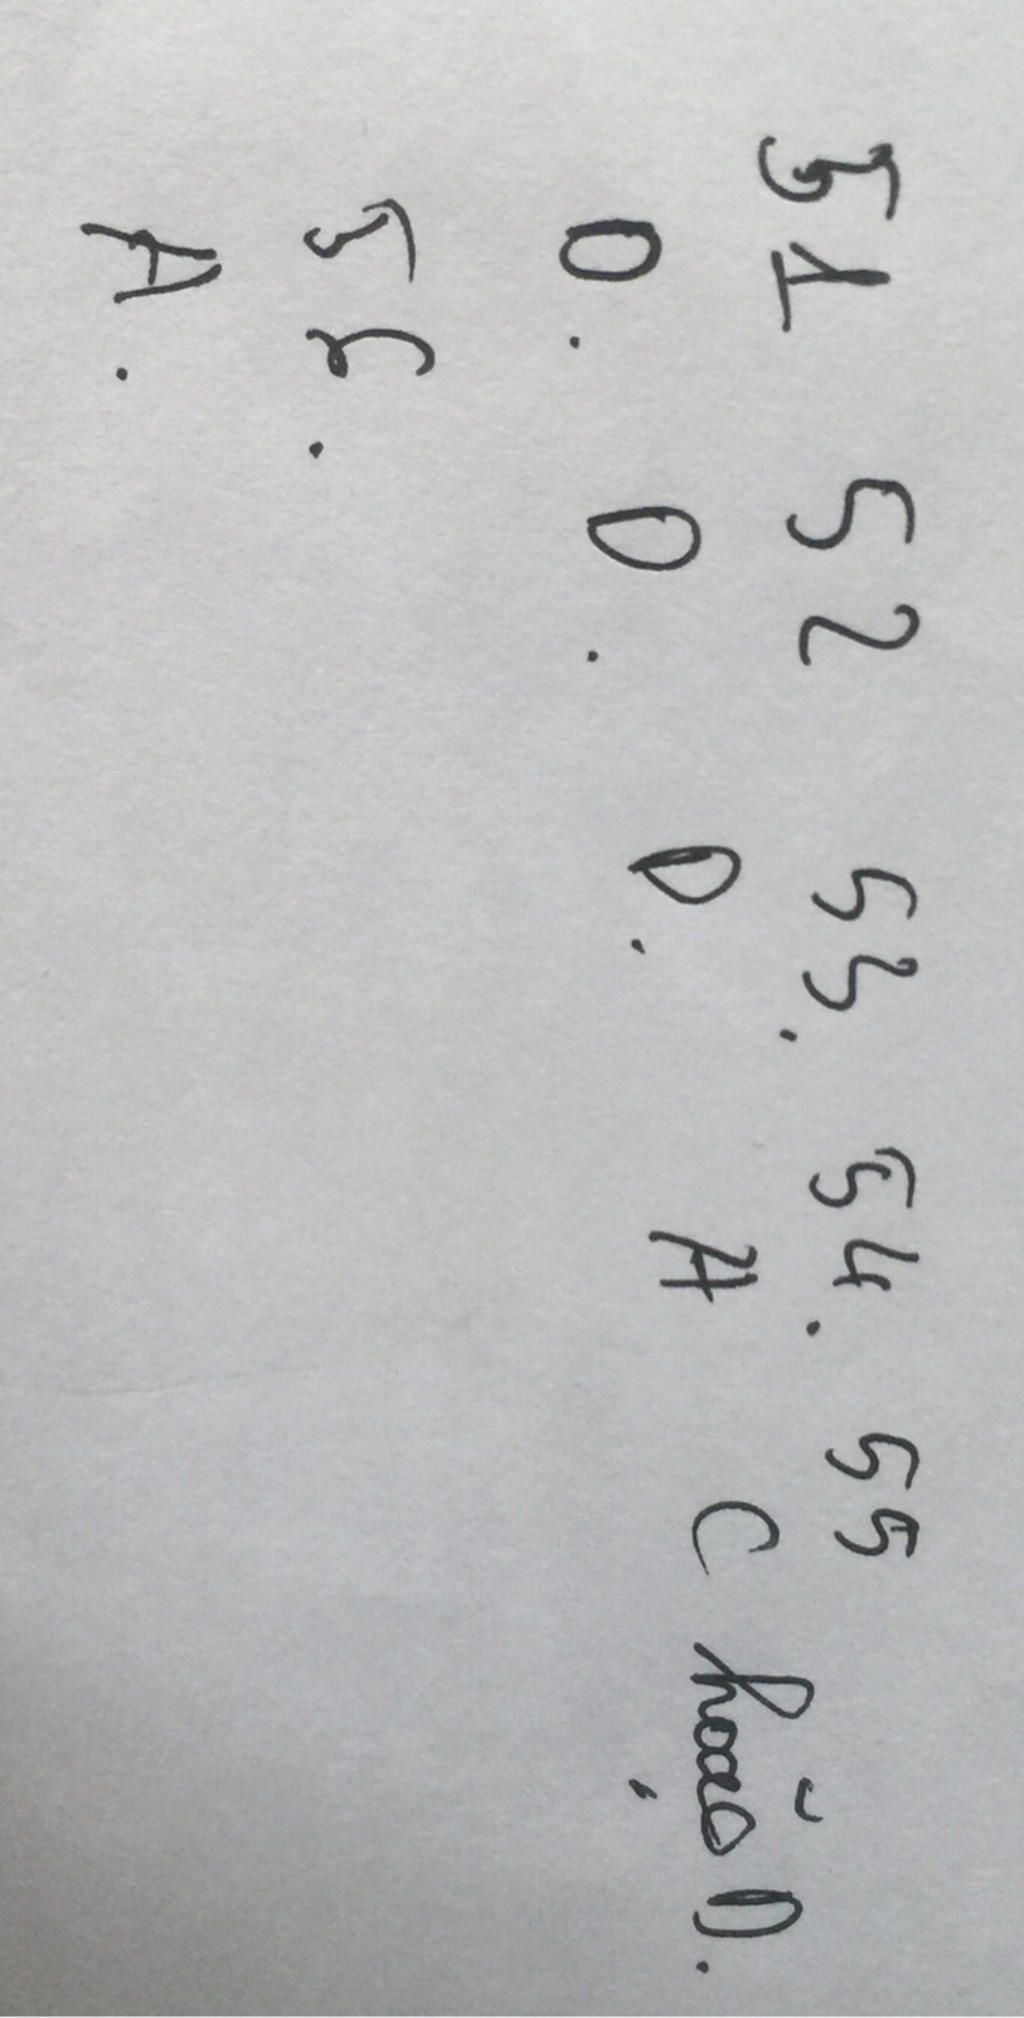 51 52 53. 54. 55
D. D. D. A C hoặc D.
56.
A.